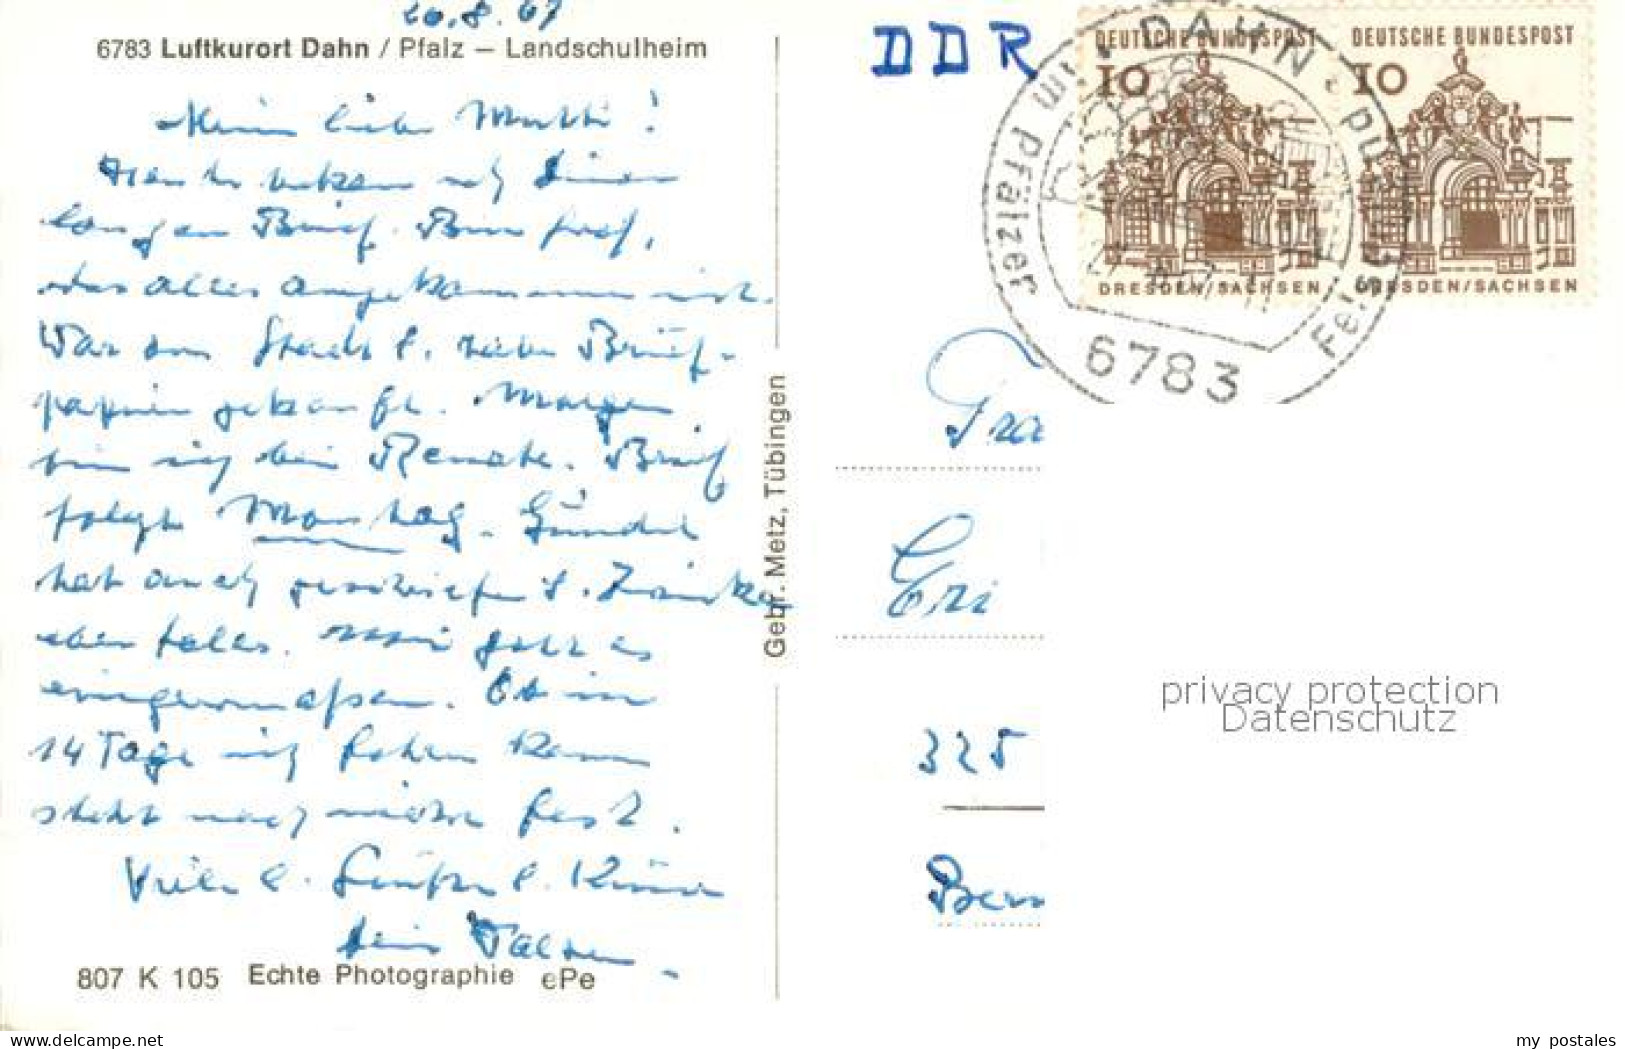 26.8.67
6783 Luftkurort Dahn / Pfalz – Landschulheim
Mein liebe Mutti!
Heute bekam ich Deinen
langen Brief. Bin froh,
das alles angekommen ist.
War Stadt
papier gekauft. Morgen
bin ich bei Renate. Brief
folgt Montag. Gündel
hat auch geschrieben
aber tolles. Mir geht es
einigermaßen. Ob in
14 Tage ich fahren kann
steht noch nicht fest.
Viele l. Grüße
Dein
807 K 105 Echte Photographie ePe
Gebr. Metz, Tübingen
DDR
DEUTSCHE BUNDESPOST
10
DRESDEN/SACHSEN
DEUTSCHE BUNDESPOST
10
DRESDEN/SACHSEN
DAHN
im Pfälzer
6783
Fra
Eri
325
Ber
privacy protection
Datenschutz
www.delcampe.net
my_postales